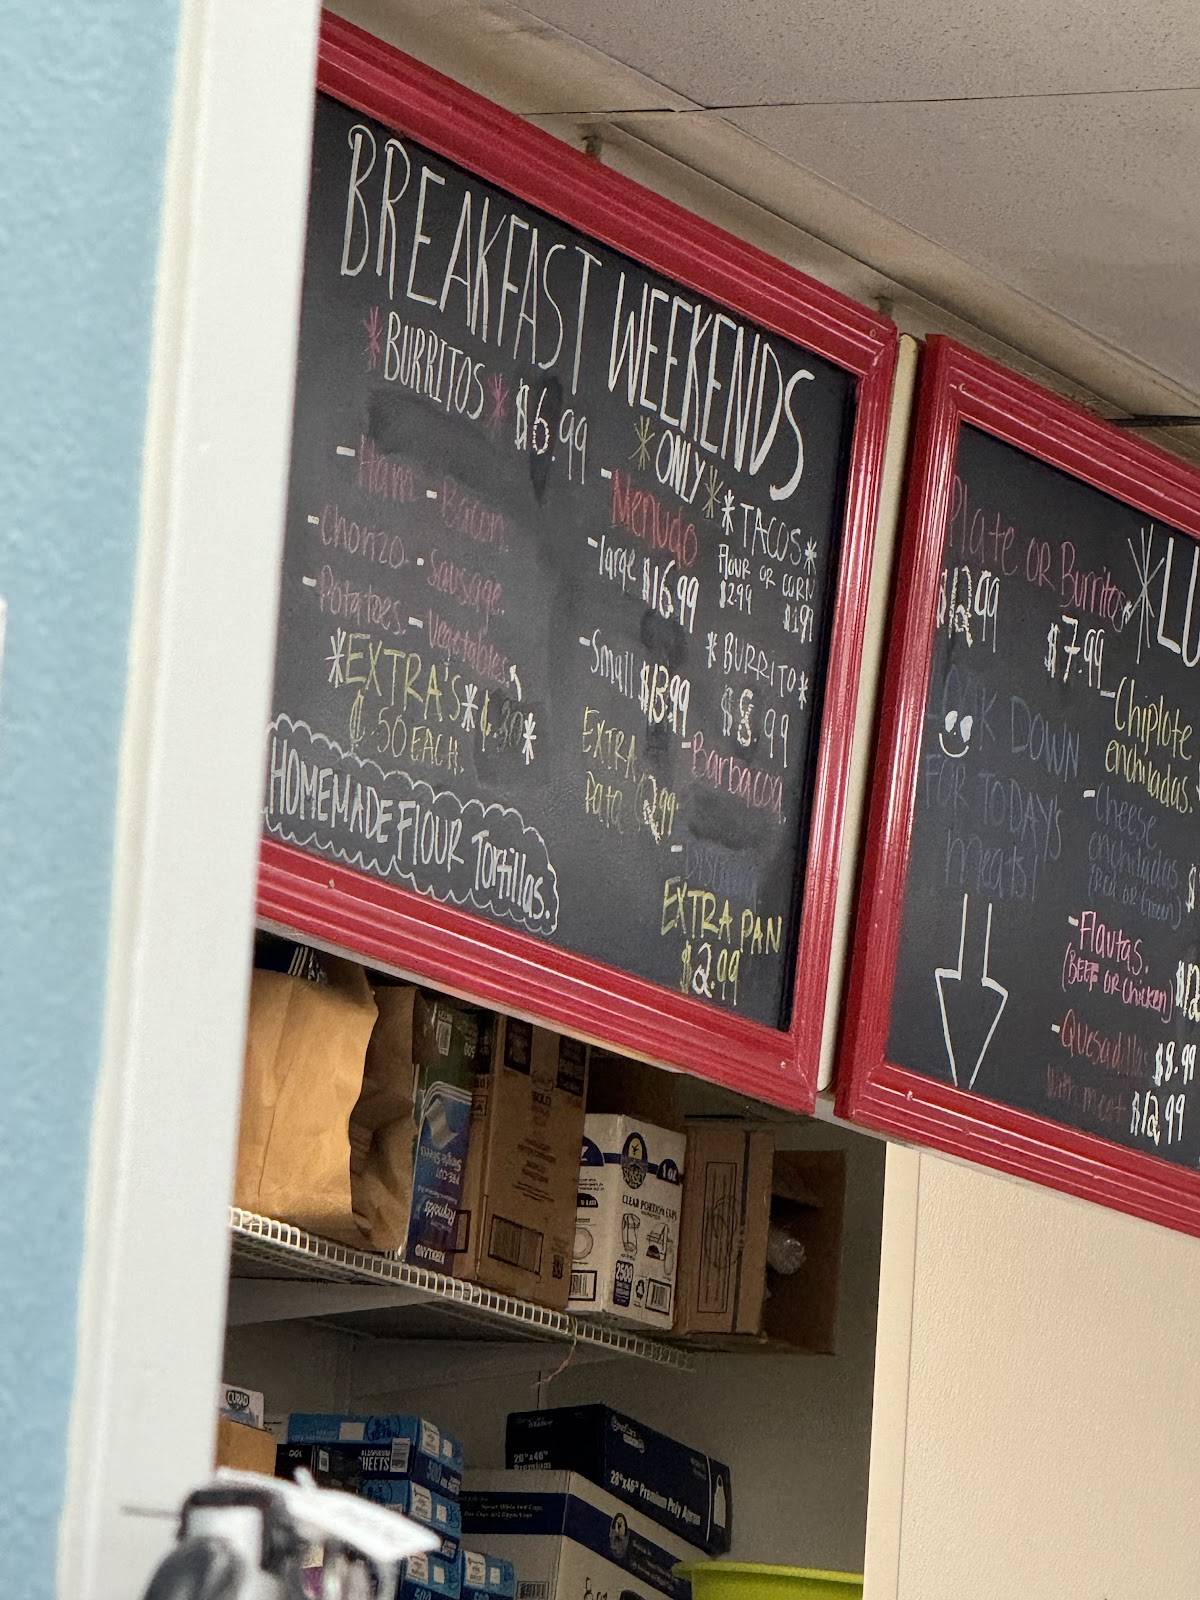 BREAKFAST WEEKENDS
*BURRITOS* $6.99
*ONLY*
-Ham -Bacon.
-Chorizo. -Sausage.
-Potatoes. -Vegetables.
*EXTRA'S*
¢.50 EACH.
HOMEMADE FlOUR Tortillas.
-Menudo
-large $16.99
-Small $13.99
EXTRA
Pata
*TACOS*
FlOUR OR CORN
$2.99 $1.99
*BURRITO*
$8.99
-Barbacoa.
EXTRA PAN
$2.99
Plate OR Burritos*
$12.99
$7.99
LOOK DOWN
FOR TODAY'S
meats!
-Chiplote
enchiladas.
-Cheese
enchiladas
(Red or Green)
-Flautas.
(BEEF OR Chicken)
-Quesadillas $8.99
with meat $12.99
PRE-CUT
Reynolds
KIRKLAND
1 OZ
CLEAR PORTION CUPS
2500
CURAD
SHEETS
500
28"x46" Premium
28"x46" Premium Poly Apron